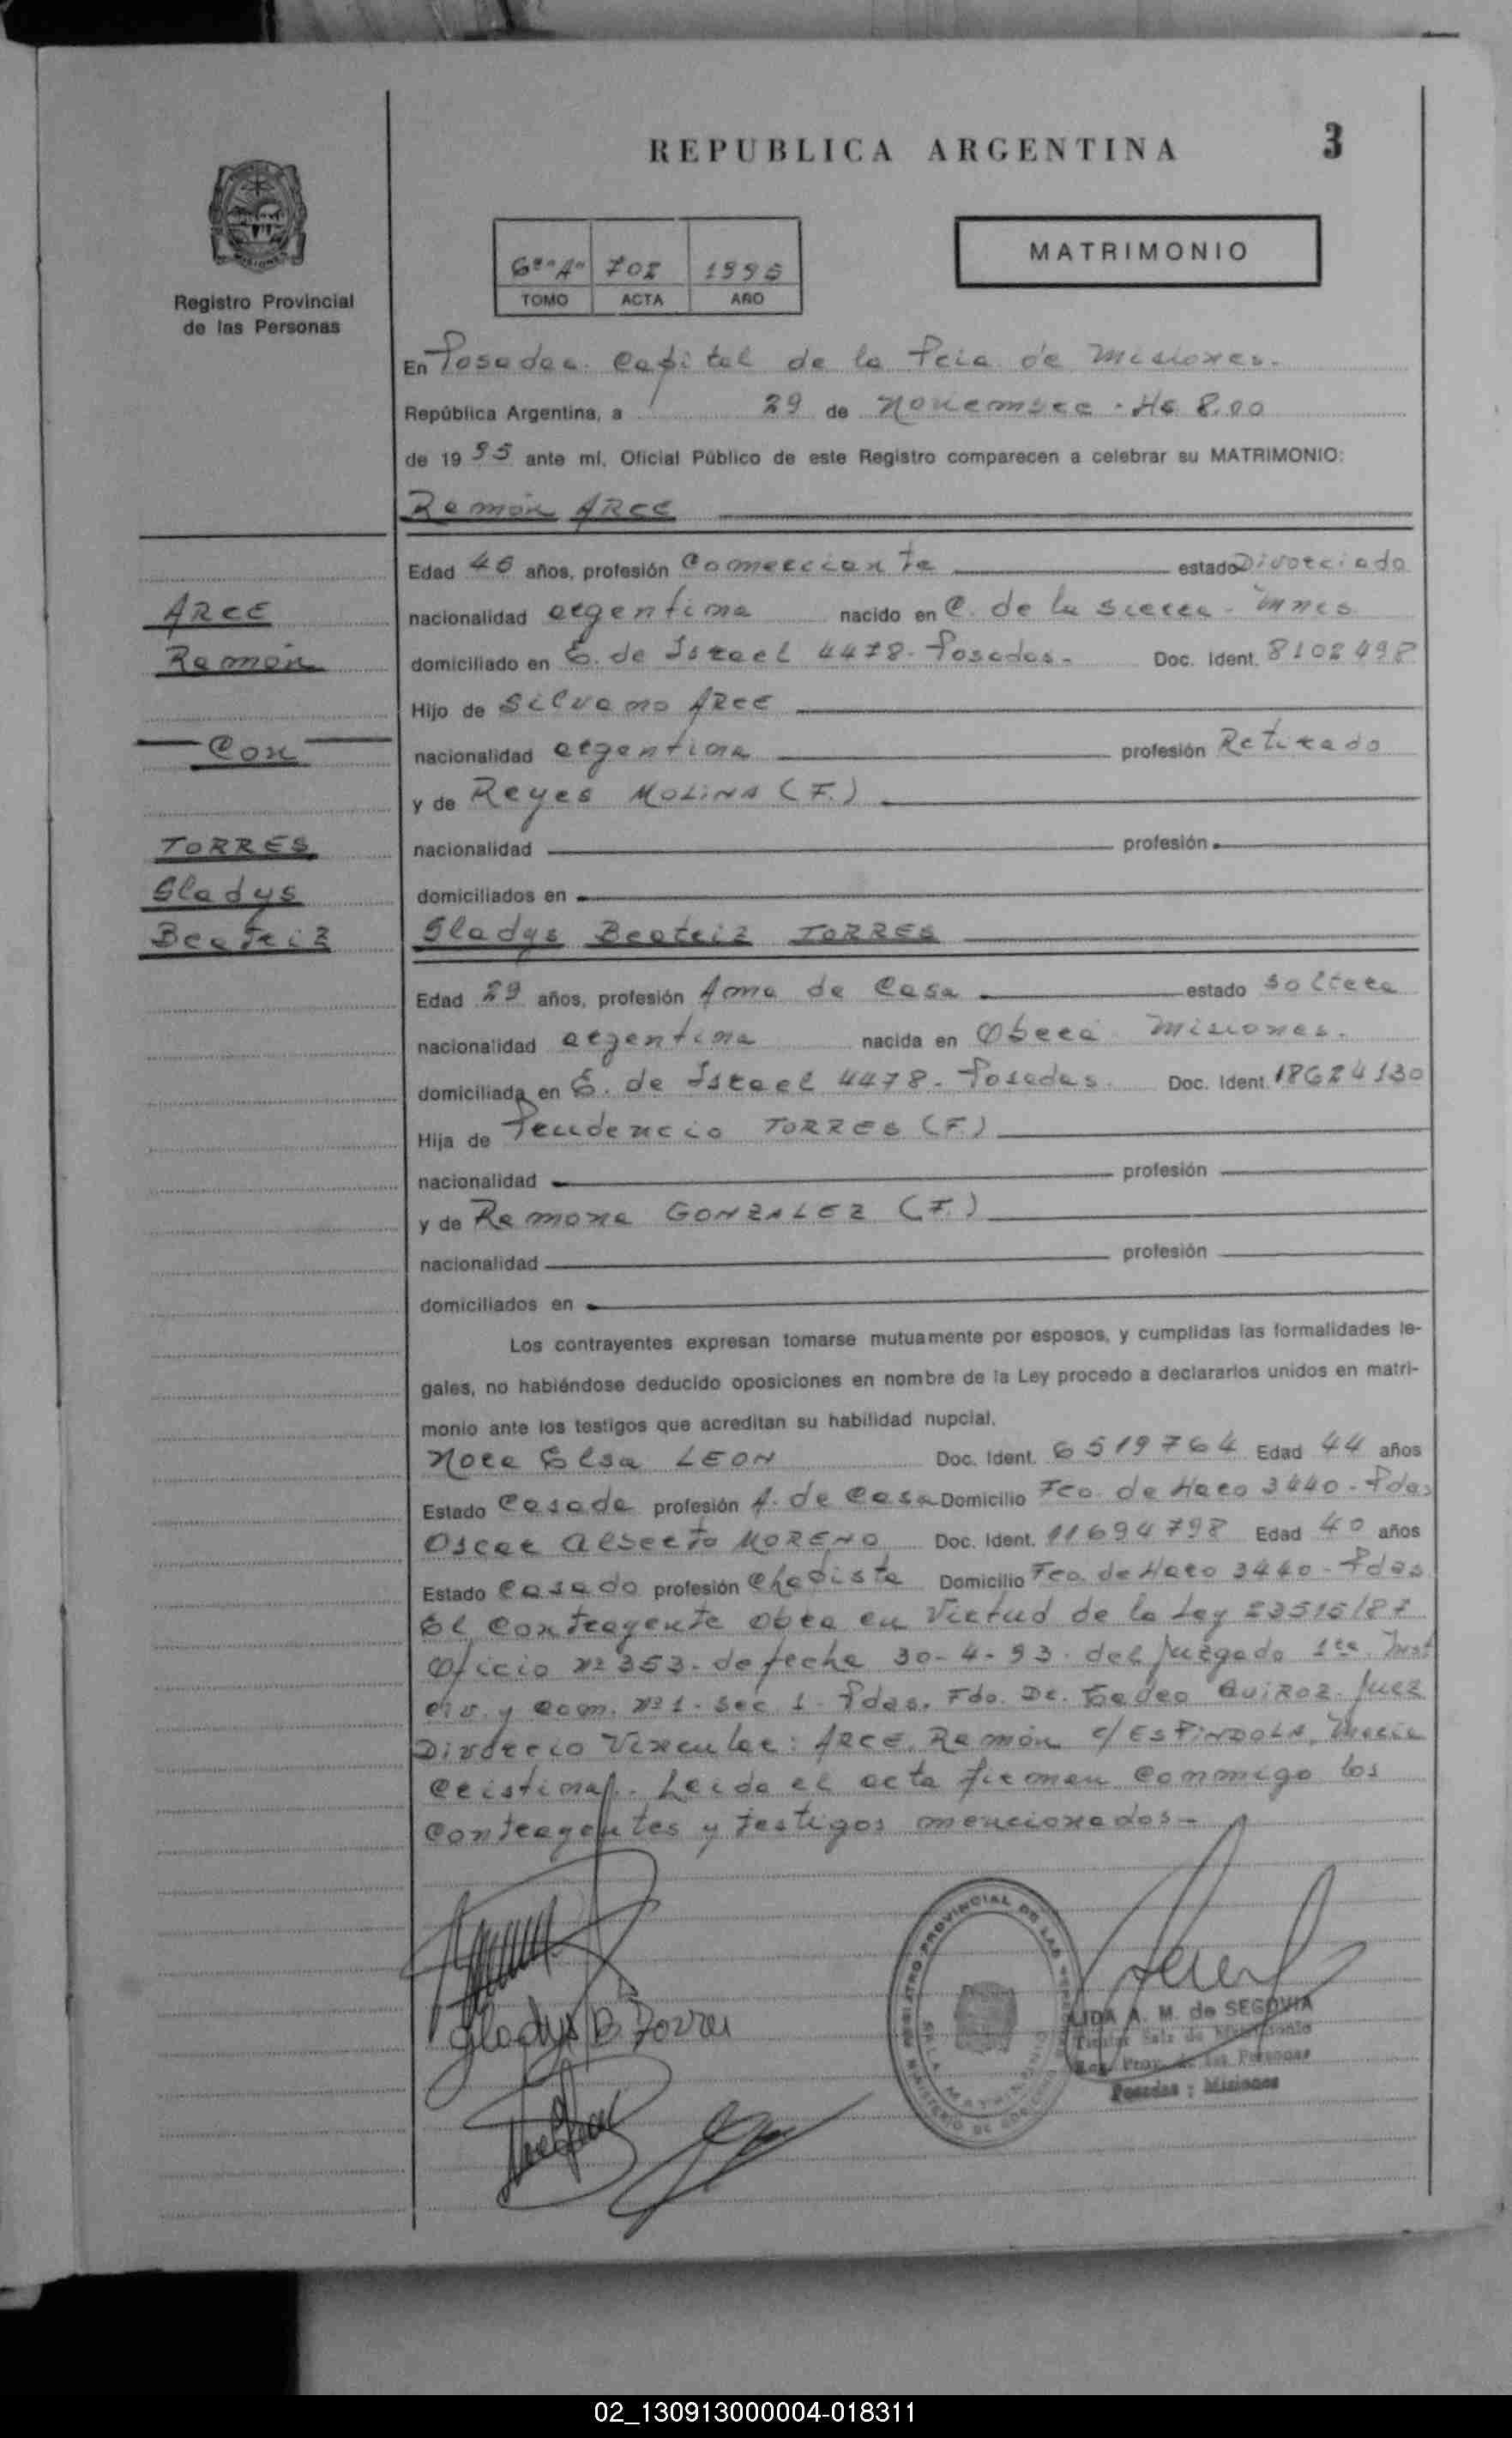 REPUBLICA ARGENTINA
3
Registro Provincial
de las Personas
6º "A" 701 1995
TOMO ACTA AÑO
MATRIMONIO
En Posadas. Capital de la Pcia de Misiones.
República Argentina, a 29 de Noviembre - Hs 8,00
de 1995 ante mí, Oficial Público de este Registro comparecen a celebrar su MATRIMONIO:
Ramón ARCE
Edad 46 años, profesión Comerciante estado Divorciado
ARCE
nacionalidad argentina nacido en C. de la Sierra - Mnes
Ramón
domiciliado en E. de Israel 4478 - Posadas - Doc. Ident. 8102498
Hijo de Silvano ARCE
Con
nacionalidad argentina profesión Retirado
y de Reyes MOLINA (F.)
TORRES
nacionalidad profesión
Gladys
domiciliados en
Beatriz
Gladys Beatriz TORRES
Edad 29 años, profesión Ama de Casa estado Soltera
nacionalidad argentina nacida en Oberá Misiones.
domiciliada en E. de Israel 4478 - Posadas. Doc. Ident. 18624130
Hija de Prudencio TORRES (F.)
nacionalidad profesión
y de Ramona GONZALEZ (F.)
nacionalidad profesión
domiciliados en
Los contrayentes expresan tomarse mutuamente por esposos, y cumplidas las formalidades le-
gales, no habiéndose deducido oposiciones en nombre de la Ley procedo a declararlos unidos en matri-
monio ante los testigos que acreditan su habilidad nupcial.
Nora Elsa LEON Doc. Ident. 6519764 Edad 44 años
Estado Casada profesión A. de Casa Domicilio Fco. de Haro 3440 - Pdas
Oscar Alberto MORENO Doc. Ident. 11694798 Edad 40 años
Estado Casado profesión Chapista Domicilio Fco. de Haro 3440 - Pdas
El Contrayente obra en Virtud de la Ley 23515/87
Oficio Nº 353 - de fecha 30-4-93 - del Juzgado 1ra Inst
Civ. y Com. Nº 1 - Sec 1 - Pdas. Fdo. Dr. Tadeo QUIROZ. Juez
Divorcio Vincular: ARCE, Ramón c/ ESPINDOLA, María
Cristina. Leída el acta firman conmigo los
contrayentes y testigos mencionados -
Gladys B Torres
REGISTRO PROVINCIAL DE LAS PERSONAS
SALA MATRIMONIO
MINISTERIO DE GOBIERNO
LIDA A. M. de SEGOVIA
Titular Sala de Matrimonio
Reg. Prov. de las Personas
Posadas : Misiones
02_130913000004-018311